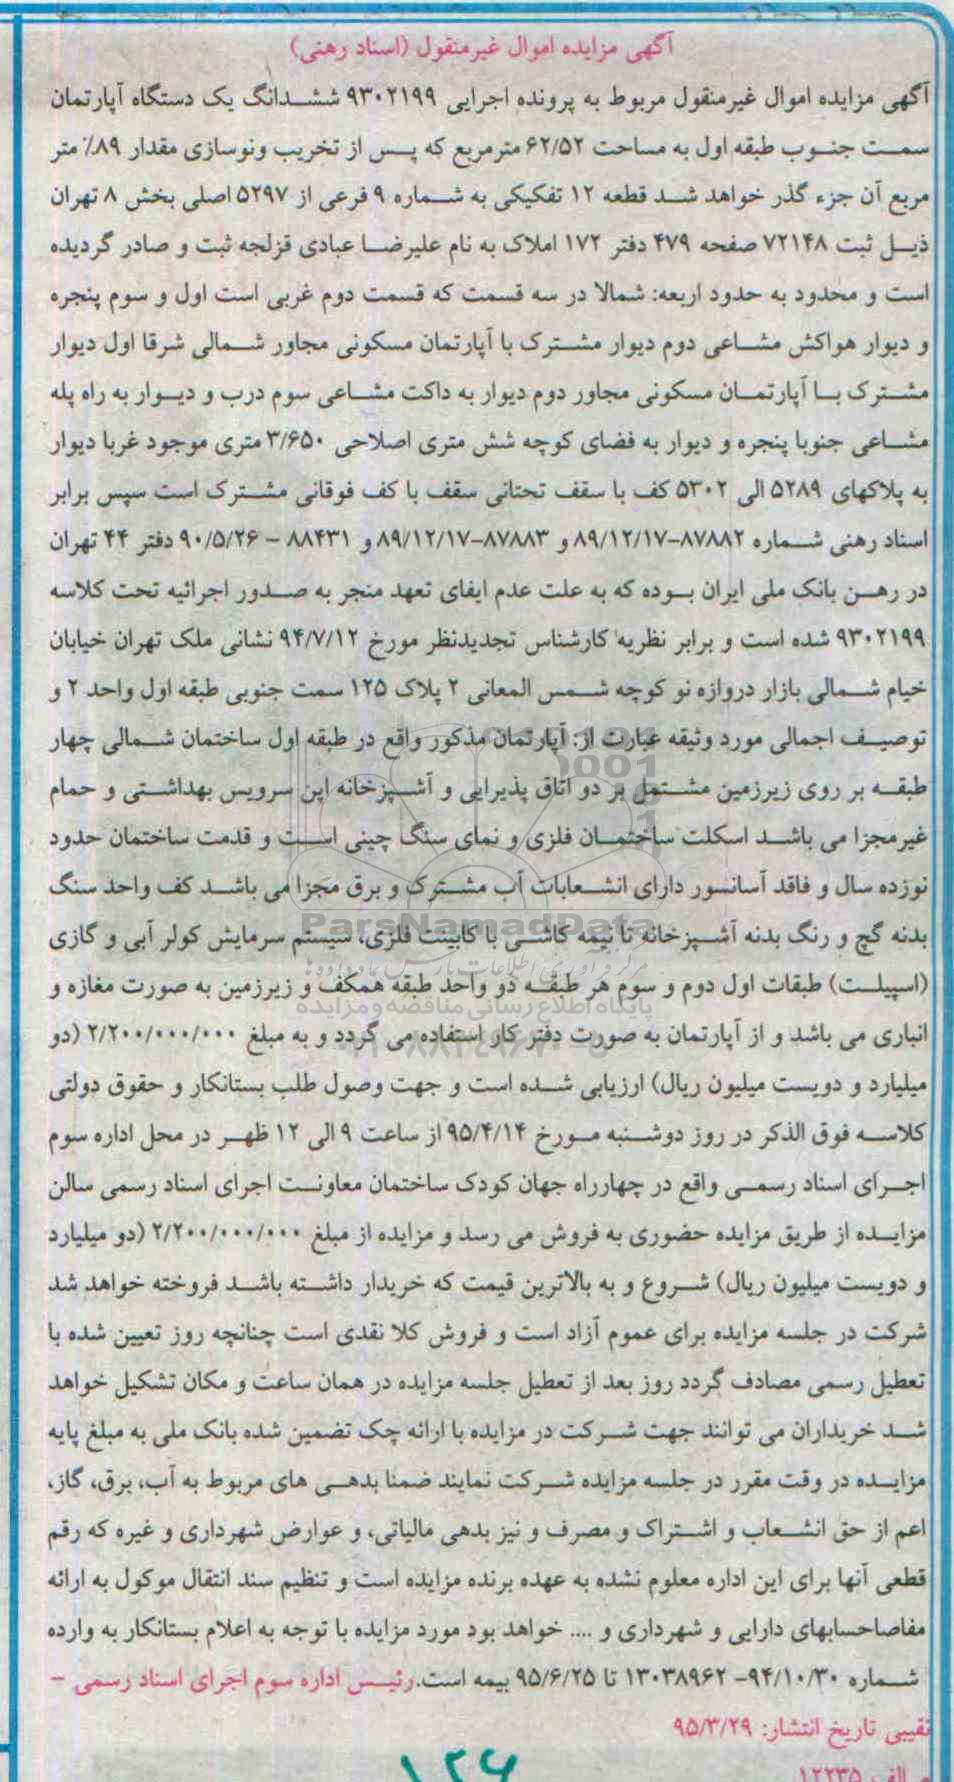 آگهی مزایده اموال غیرمنقول (اسناد رهنی)
آگهی مزایده اموال غیرمنقول مربوط به پرونده اجرایی ۹۳۰۲۱۹۹ ششدانگ یک دستگاه آپارتمان
سمت جنوب طبقه اول به مساحت ۶۲/۵۲ مترمربع که پس از تخریب ونوسازی مقدار ۸۹٪ متر
مربع آن جزء گذر خواهد شد قطعه ۱۲ تفکیکی به شماره ۹ فرعی از ۵۲۹۷ اصلی بخش ۸ تهران
ذیل ثبت ۷۲۱۴۸ صفحه ۴۷۹ دفتر ۱۷۲ املاک به نام علیرضا عبادی قزلجه ثبت و صادر گردیده
است و محدود به حدود اربعه: شمالا در سه قسمت که قسمت دوم غربی است اول و سوم پنجره
و دیوار هواکش مشاعی دوم دیوار مشترک با آپارتمان مسکونی مجاور شمالی شرقا اول دیوار
مشترک با آپارتمان مسکونی مجاور دوم دیوار به داکت مشاعی سوم درب و دیوار به راه پله
مشاعی جنوبا پنجره و دیوار به فضای کوچه شش متری اصلاحی ۳/۶۵۰ متری موجود غربا دیوار
به پلاکهای ۵۲۸۹ الی ۵۳۰۲ کف با سقف تحتانی سقف با کف فوقانی مشترک است سپس برابر
اسناد رهنی شماره ۸۷۸۸۲-۸۹/۱۲/۱۷ و ۸۷۸۸۳-۸۹/۱۲/۱۷ و ۸۸۴۳۱ - ۹۰/۵/۲۶ دفتر ۴۴ تهران
در رهن بانک ملی ایران بوده که به علت عدم ایفای تعهد منجر به صدور اجرائیه تحت کلاسه
۹۳۰۲۱۹۹ شده است و برابر نظریه کارشناس تجدیدنظر مورخ ۹۴/۷/۱۲ نشانی ملک تهران خیابان
خیام شمالی بازار دروازه نو کوچه شمس المعانی ۲ پلاک ۱۲۵ سمت جنوبی طبقه اول واحد ۲ و
توصیف اجمالی مورد وثیقه عبارت از: آپارتمان مذکور واقع در طبقه اول ساختمان شمالی چهار
طبقه بر روی زیرزمین مشتمل بر دو اتاق پذیرایی و آشپزخانه اپن سرویس بهداشتی و حمام
غیرمجزا می باشد اسکلت ساختمان فلزی و نمای سنگ چینی است و قدمت ساختمان حدود
نوزده سال و فاقد آسانسور دارای انشعابات آب مشترک و برق مجزا می باشد کف واحد سنگ
بدنه گچ و رنگ بدنه آشپزخانه تا نیمه کاشی با کابینت فلزی، سیستم سرمایش کولر آبی و گازی
(اسپیلت) طبقات اول دوم و سوم هر طبقه دو واحد طبقه همکف و زیرزمین به صورت مغازه و
انباری می باشد و از آپارتمان به صورت دفتر کار استفاده می گردد و به مبلغ ۲/۲۰۰/۰۰۰/۰۰۰ (دو
میلیارد و دویست میلیون ریال) ارزیابی شده است و جهت وصول طلب بستانکار و حقوق دولتی
کلاسه فوق الذکر در روز دوشنبه مورخ ۹۵/۴/۱۴ از ساعت ۹ الی ۱۲ ظهر در محل اداره سوم
اجرای اسناد رسمی واقع در چهارراه جهان کودک ساختمان معاونت اجرای اسناد رسمی سالن
مزایده از طریق مزایده حضوری به فروش می رسد و مزایده از مبلغ ۲/۲۰۰/۰۰۰/۰۰۰ (دو میلیارد
و دویست میلیون ریال) شروع و به بالاترین قیمت که خریدار داشته باشد فروخته خواهد شد
شرکت در جلسه مزایده برای عموم آزاد است و فروش کلا نقدی است چنانچه روز تعیین شده با
تعطیل رسمی مصادف گردد روز بعد از تعطیل جلسه مزایده در همان ساعت و مکان تشکیل خواهد
شد خریداران می توانند جهت شرکت در مزایده با ارائه چک تضمین شده بانک ملی به مبلغ پایه
مزایده در وقت مقرر در جلسه مزایده شرکت نمایند ضمنا بدهی های مربوط به آب، برق، گاز،
اعم از حق انشعاب و اشتراک و مصرف و نیز بدهی مالیاتی، و عوارض شهرداری و غیره که رقم
قطعی آنها برای این اداره معلوم نشده به عهده برنده مزایده است و تنظیم سند انتقال موکول به ارائه
مفاصاحسابهای دارایی و شهرداری و .... خواهد بود مورد مزایده با توجه به اعلام بستانکار به وارده
شماره ۹۴/۱۰/۳۰- ۱۳۰۳۸۹۶۲ تا ۹۵/۶/۲۵ بیمه است.رئیس اداره سوم اجرای اسناد رسمی -
نقیبی تاریخ انتشار: ۹۵/۳/۲۹
م الف ۱۲۲۳۵
۱۲۶
ParsNamadData
پایگاه اطلاع رسانی مناقصه و مزایده